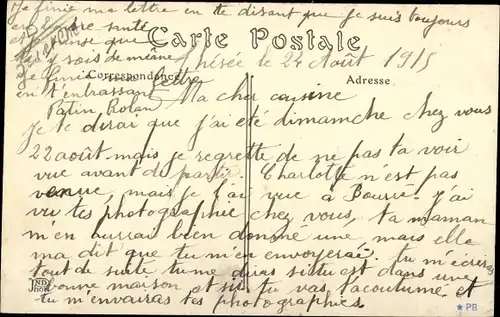 Je finie ma lettre en te disant que je suis toujours
en bonne santé
et pense que
tu y sois de même
Je finie lettre
en t'embrassant
Patin Rolan
Carte Postale
Correspondance
Adresse
le 24 Août 1915
Ma cher cousine
Je te dirai que j'ai été dimanche chez vous
22 août mais je regrette de ne pas ta voir
vue avant de partir. Charlotte n'est pas
venue, mais je l'ai vue à Bourré. J'ai
vu tes photographie chez vous, ta maman
m'en aurrai bien donné une, mais elle
ma dit que tu m'en envoyerai. Tu m'écrira
tout de suite tu me diras si tu est dans une
bonne maison et si tu vas tacoutumé et
tu m'envairas tes photographies.
ND
Phot
PB